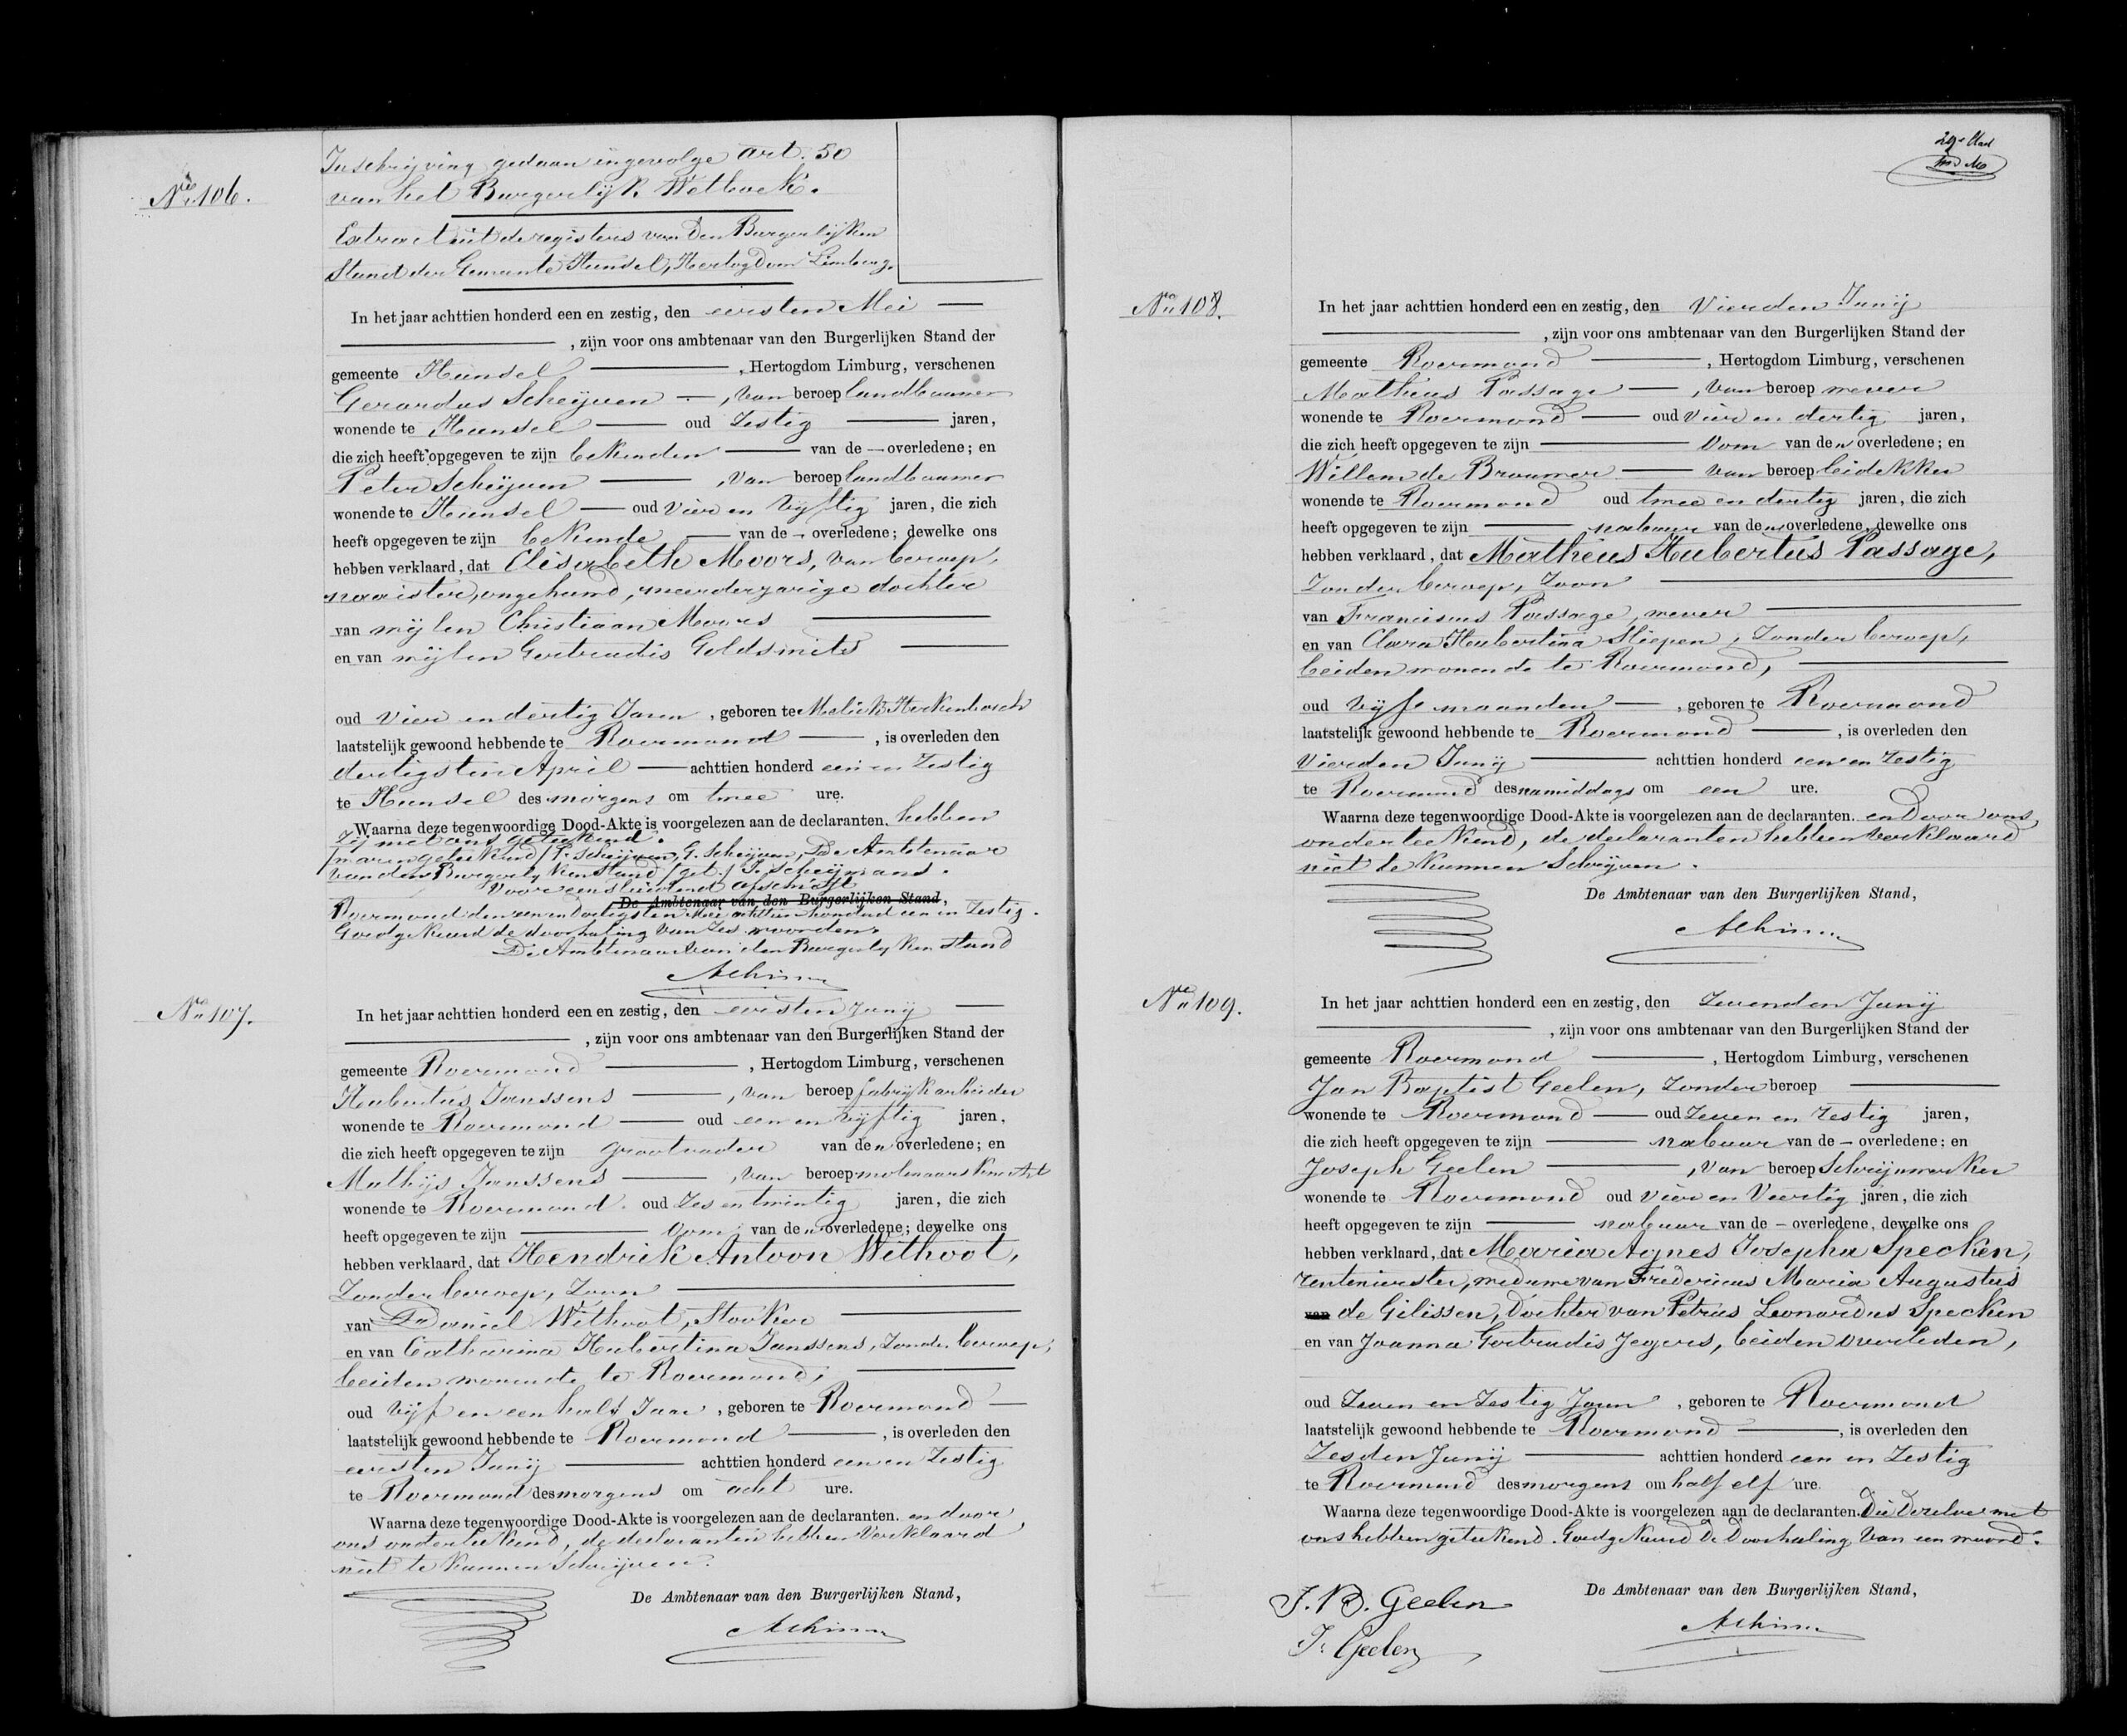 No 106.
Inschrijving gedaan ingevolge art. 50
van het Burgerlijk Wetboek.
Extract uit de registers van den Burgerlijken
Stand der Gemeente Hunsel, Hertogdom Limburg.
In het jaar achttien honderd een en zestig, den eersten Mei
, zijn voor ons ambtenaar van den Burgerlijken Stand der
gemeente Hunsel , Hertogdom Limburg, verschenen
Gerardus Scheijven , van beroep landbouwer
wonende te Hunsel oud Zestig jaren,
die zich heeft opgegeven te zijn bekenden van de overledene; en
Peter Scheijven , van beroep landbouwer
wonende te Hunsel oud vier en vijftig jaren, die zich
heeft opgegeven te zijn bekende van de overledene; dewelke ons
hebben verklaard, dat Elisabeth Moors, van beroep
naaister, ongehuwd, meerderjarige dochter
van wijlen Christiaan Moors
en van wijlen Gertrudis Goldsmits
oud vier en dertig Jaren , geboren te Melick Herkenbosch
laatstelijk gewoond hebbende te Roermond , is overleden den
dertigsten April achttien honderd een en Zestig
te Hunsel des morgens om twee ure.
Waarna deze tegenwoordige Dood-Akte is voorgelezen aan de declaranten. hebben
zij met ons geteekend.
/waren geteekend/ P. Scheijven, G. Scheijven, De Ambtenaar
van den Burgerlijken Stand /get./ P. Scheijmans.
Voor eensluidend afschrift
De Ambtenaar van den Burgerlijken Stand,
Roermond den een en dertigsten Mei achttien honderd een en Zestig.
Goedgekeurd de doorhaling van Zes woorden.
De Ambtenaar van den Burgerlijken Stand
No 107.
In het jaar achttien honderd een en zestig, den eersten Junij
, zijn voor ons ambtenaar van den Burgerlijken Stand der
gemeente Roermond , Hertogdom Limburg, verschenen
Hubertus Janssens , van beroep fabrijkarbeider
wonende te Roermond oud een en vijftig jaren,
die zich heeft opgegeven te zijn grootvader van den overledene; en
Mathijs Janssens , van beroep molenaarsknecht
wonende te Roermond oud Zes en twintig jaren, die zich
heeft opgegeven te zijn oom van den overledene; dewelke ons
hebben verklaard, dat Hendrik Antoon Withoot,
Zonder beroep, Zoon
van Daniel Withoot, Stooker
en van Catharina Hubertina Janssens, Zonder beroep,
beiden wonende te Roermond,
oud vijf en een half Jaar , geboren te Roermond
laatstelijk gewoond hebbende te Roermond , is overleden den
eersten Junij achttien honderd een en Zestig
te Roermond des morgens om acht ure.
Waarna deze tegenwoordige Dood-Akte is voorgelezen aan de declaranten. en door
ons onderteekend, de declaranten hebben verklaard
niet te kunnen Schrijven.
De Ambtenaar van den Burgerlijken Stand,
29e blad
No 108.
In het jaar achttien honderd een en zestig, den Vierden Junij
, zijn voor ons ambtenaar van den Burgerlijken Stand der
gemeente Roermond , Hertogdom Limburg, verschenen
Matheus Passage , van beroep wever
wonende te Roermond oud vier en dertig jaren,
die zich heeft opgegeven te zijn Oom van den overledene; en
Willem de Brouwer van beroep leidekker
wonende te Roermond oud twee en dertig jaren, die zich
heeft opgegeven te zijn nabuur van den overledene, dewelke ons
hebben verklaard, dat Matheus Hubertus Passage,
Zonder beroep, Zoon
van Franciscus Passage, wever
en van Clara Hubertina Sliepen, Zonder beroep,
beiden wonende te Roermond,
oud vijf maanden , geboren te Roermond
laatstelijk gewoond hebbende te Roermond , is overleden den
Vierden Junij achttien honderd een en Zestig
te Roermond des namiddags om een ure.
Waarna deze tegenwoordige Dood-Akte is voorgelezen aan de declaranten. en door ons
onderteekend, de declaranten hebben verklaard
niet te kunnen Schrijven.
De Ambtenaar van den Burgerlijken Stand,
No 109.
In het jaar achttien honderd een en zestig, den Zevenden Junij
, zijn voor ons ambtenaar van den Burgerlijken Stand der
gemeente Roermond , Hertogdom Limburg, verschenen
Jan Baptist Geelen, Zonder beroep
wonende te Roermond oud Zeven en Zestig jaren,
die zich heeft opgegeven te zijn nabuur van de overledene; en
Joseph Geelen , van beroep Schrijnwerker
wonende te Roermond oud vier en Veertig jaren, die zich
heeft opgegeven te zijn nabuur van de overledene, dewelke ons
hebben verklaard, dat Maria Agnes Josepha Specken,
rentenierster, weduwe van Fredericus Maria Augustus
van de Gilissen, Dochter van Petrus Leonardus Specken
en van Joanna Gertrudis Jegers, beiden overleden,
oud Zeven en Zestig Jaren , geboren te Roermond
laatstelijk gewoond hebbende te Roermond , is overleden den
Zesden Junij achttien honderd een en Zestig
te Roermond des morgens om half elf ure.
Waarna deze tegenwoordige Dood-Akte is voorgelezen aan de declaranten. Die Dezelve met
ons hebben geteekend. Goedgekeurd De Doorhaling van een woord.
De Ambtenaar van den Burgerlijken Stand,
J. B. Geelen
J. Geelen